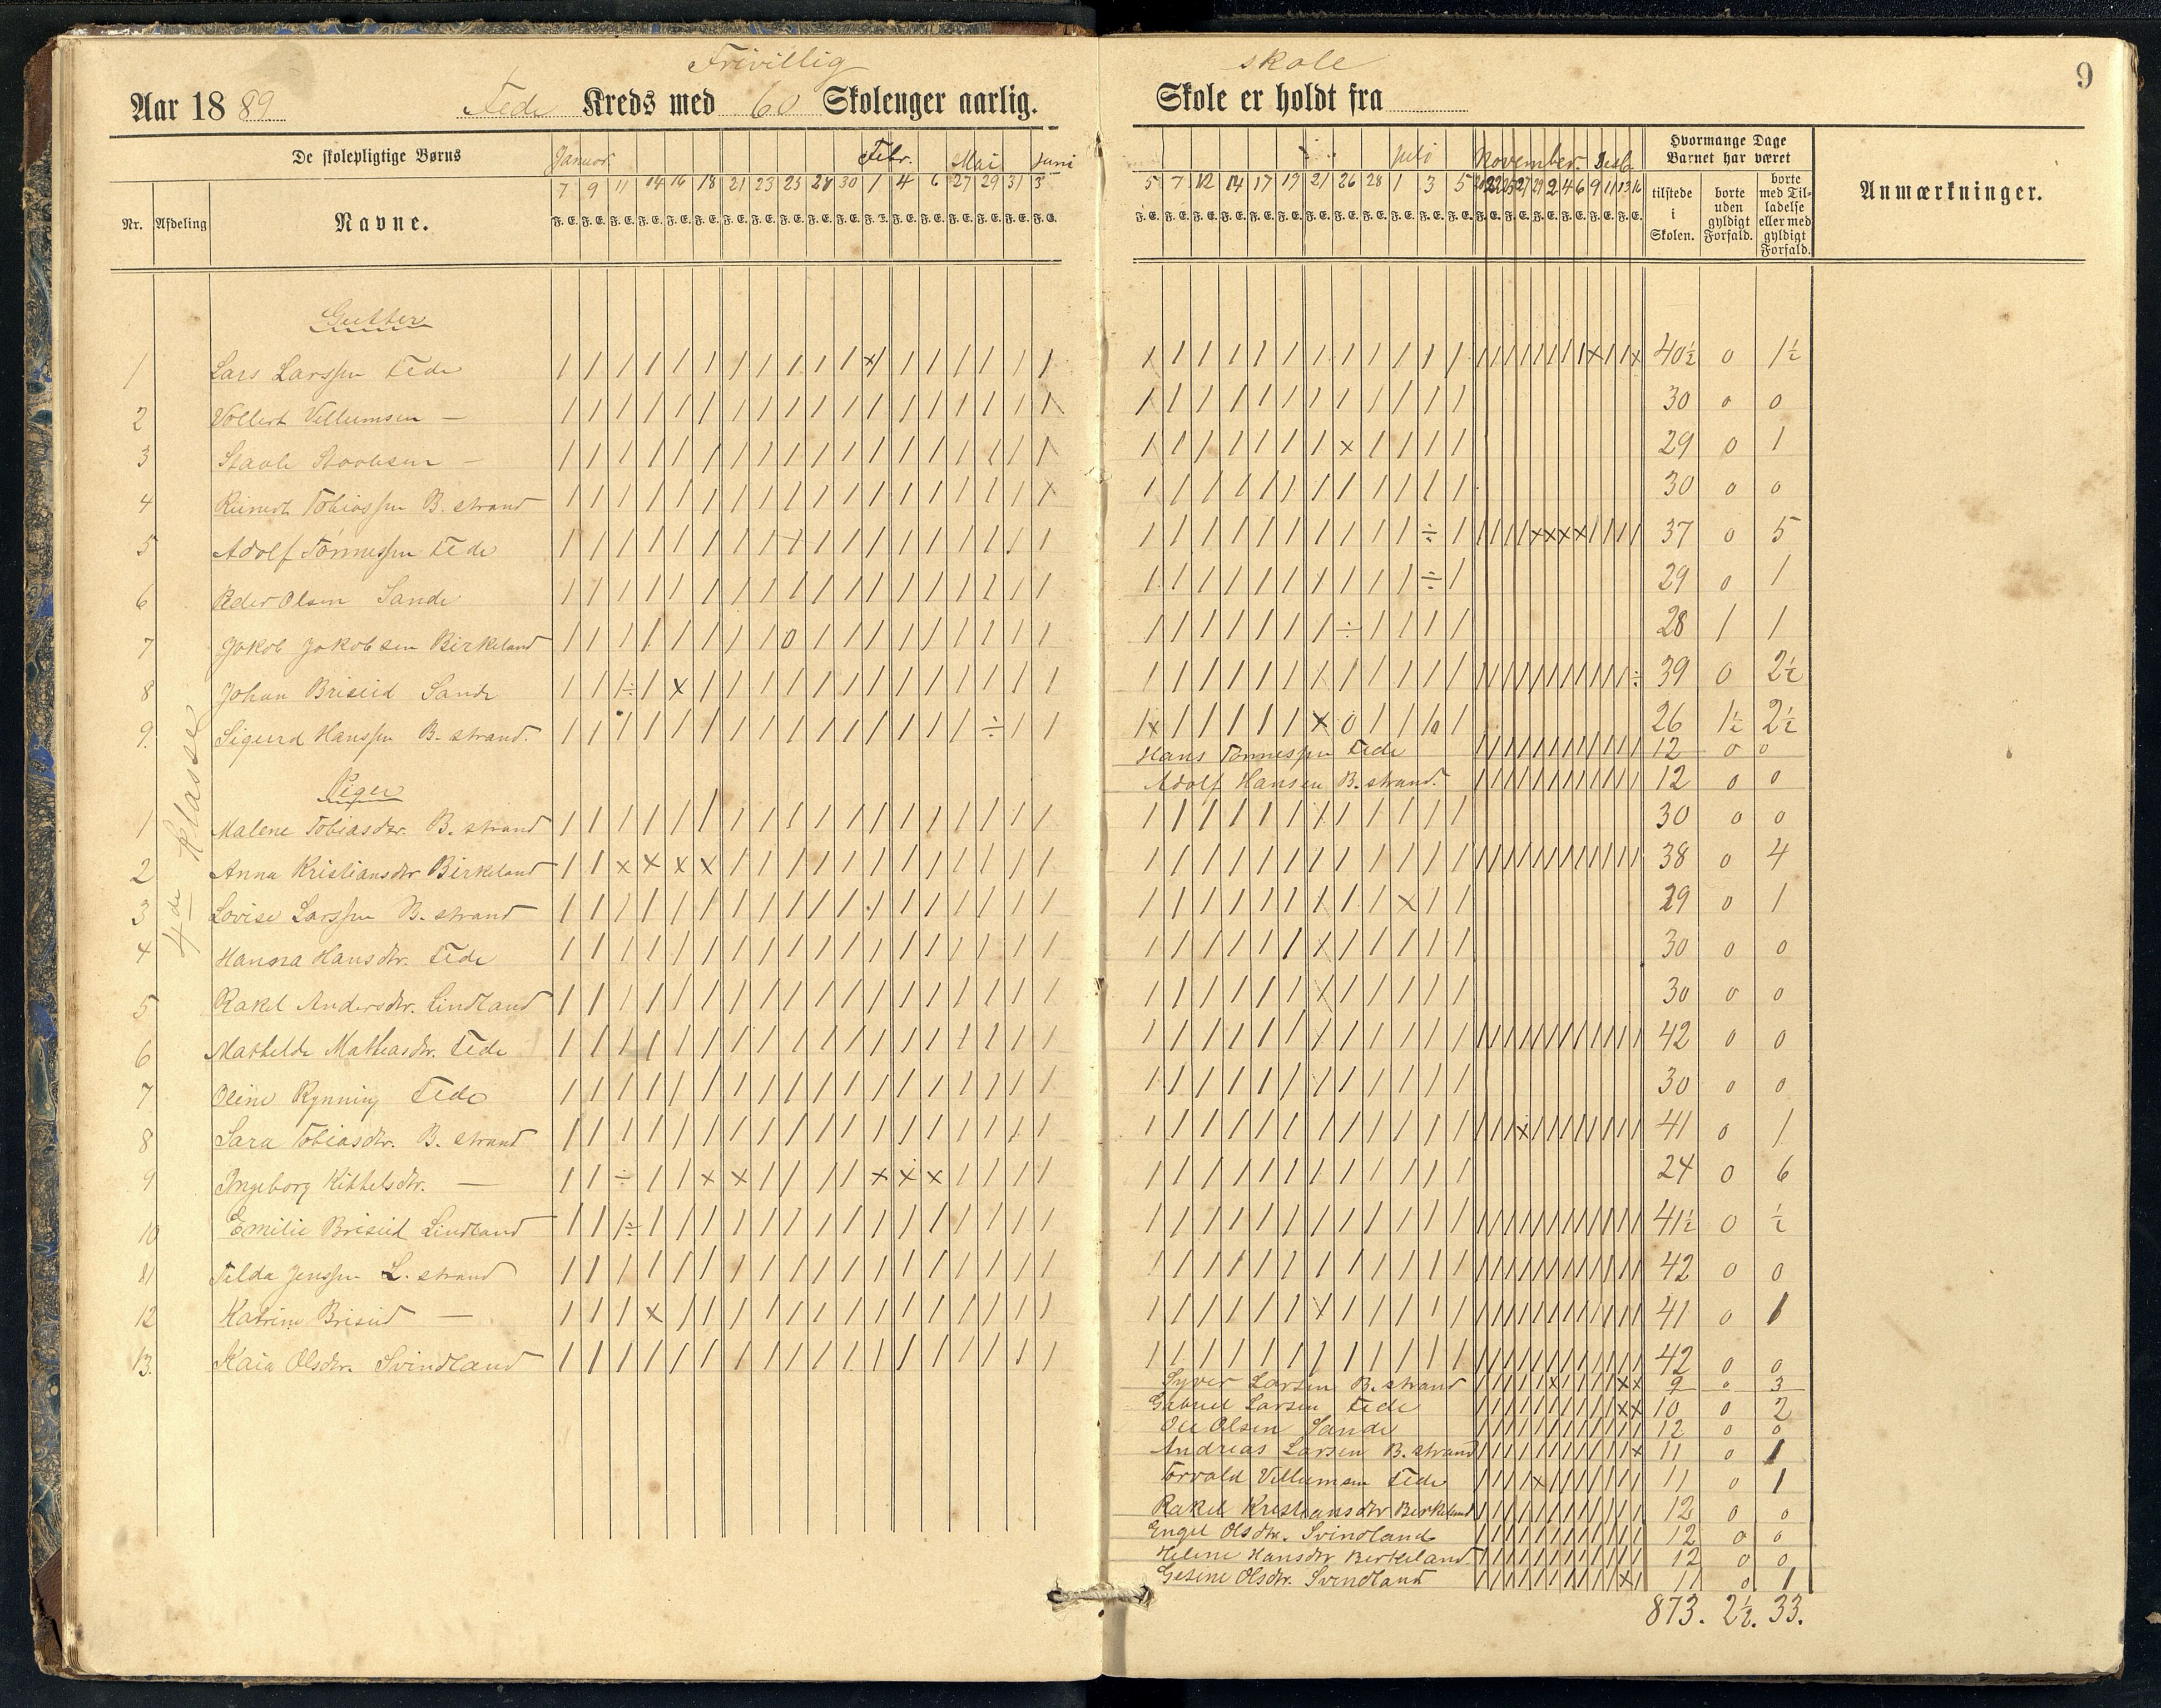 Frivillig skole
9
Aar 1889 Fede Kreds med 60 Skoleuger aarlig. Skole er holdt fra
De skolepligtige Børns
Januar. Febr. Mai Juni Juli November. Desb.
Hvormange Dage Barnet har været
Nr. Afdeling Navne.
7 9 11 14 16 18 21 23 25 28 30 1 4 6 27 29 31 3
5 7 12 14 17 19 21 26 28 1 3 5
tilstede i Skolen.
borte uden gyldigt Forfald.
borte med Tilladelse eller med gyldigt Forfald.
Anmærkninger.
4de Klasse
Gutter
1 Lars Larssen Fede 40½ 0 1½
2 Vollert Villumsen — 30 0 0
3 29 0 1
4 Reinert Tobiassen B. strand 30 0 0
5 Adolf Tønnessen Fede 37 0 5
6 Peder Olsen Sande 29 0 1
7 Jakob Jakobsen Birkeland 28 1 1
8 Johan Briseid Sande 39 0 2½
9. Sigurd Hanssen B. strand. 26 1½ 2½
Hans Tønnessen Fede 12 0 0
Adolf Hansen B. strand. 12 0 0
Piger
1 Malene Tobiasdtr. B. strand 30 0 0
2 Anna Kristiansdtr Birkeland 38 0 4
3 Lovise Larssen B. strand 29 0 1
4 Hanna Hansdtr. Fede 30 0 0
5 Rakel Andersdtr. Lindland 30 0 0
6 Mathilde Mathiasdtr. Fede 42 0 0
7 Oline Rynning Fede 30 0 0
8 Sara Tobiasdtr. B. strand 41 0 1
9 Ingeborg Kittelsdtr. — 24 0 6
10 Emilie Briseid Lindland 41½ 0 ½
11 Tilda Jenssen L. strand 42 0 0
12 Katrine Briseid — 41 0 1
13. Kaia Olsdtr. Svindland 42 0 0
Syver Larsen B. strand 9 0 3
Gabriel Larsen Fede 10 0 2
Ole Olsen Sande 12 0 0
Andreas Larsen B. strand 11 0 1
Torvald Villumsen Fede 11 0 1
Rakel Kristiansdtr Birkeland 12 0 0
Engel Olsdtr. Svindland 12 0 0
Helene Hansdtr Birkeland 12 0 0
Gesine Olsdtr. Svindland 11 0 1
873. 2½. 33.